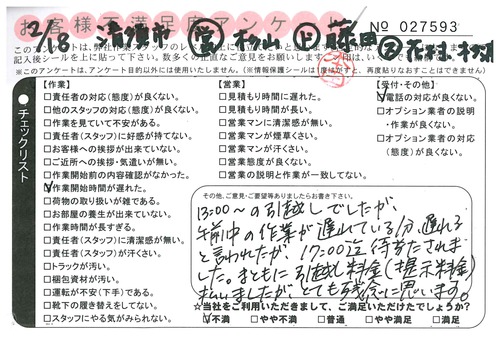 お客様不満足度アンケート
2/8 清須市 営 杉山 上 藤田
No 027593
このアンケートは、弊社作業スタッフの
記入後シールを上に貼って下さい。数多くの正直なご意見をお願い
※このアンケートは、アンケート目的以外には使用いたしません。(※情報保護シールは
が、再度貼りなおすことはできません)
チェックリスト
【作業】
□責任者の対応(態度)が良くない。
□他のスタッフの対応(態度)が良くない。
□作業を見ていて不安がある。
□責任者(スタッフ)に好感が持てない。
□お客様への挨拶が出来ていない。
□ご近所への挨拶・気遣いが無い。
□作業開始前の内容確認がなかった。
☑作業開始時間が遅れた。
□荷物の取り扱いが雑である。
□お部屋の養生が出来ていない。
□作業時間が長すぎる。
□責任者(スタッフ)に清潔感が無い。
□責任者(スタッフ)が汗くさい。
□トラックが汚い。
□梱包資材が汚い。
□運転が不安(下手)である。
□靴下の履き替えをしてない。
□スタッフにやる気がみられない。
【営業】
□見積もり時間に遅れた。
□見積もり時間が長い。
□営業マンに清潔感が無い。
□営業マンが煙草くさい。
□営業マンが汗くさい。
□営業態度が良くない。
□営業の説明と作業が一致してない。
【受付・その他】
☑電話の対応が良くない。
□オプション業者の説明
・作業が良くない。
□オプション業者の対応
(態度)が良くない。
その他、ご意見・ご要望等ありましたらお書き下さい。
13:00〜の引越しでしたが、
午前中の作業が遅れている分、遅れる
と言われたが、17:00迄待たされま
した。まともに引越し料金(提示料金)
払いましたが、とても残念に思います。
☆当社をご利用いただきまして、ご満足いただけたでしょうか?
☑不満 □やや不満 □普通 □やや満足 □満足